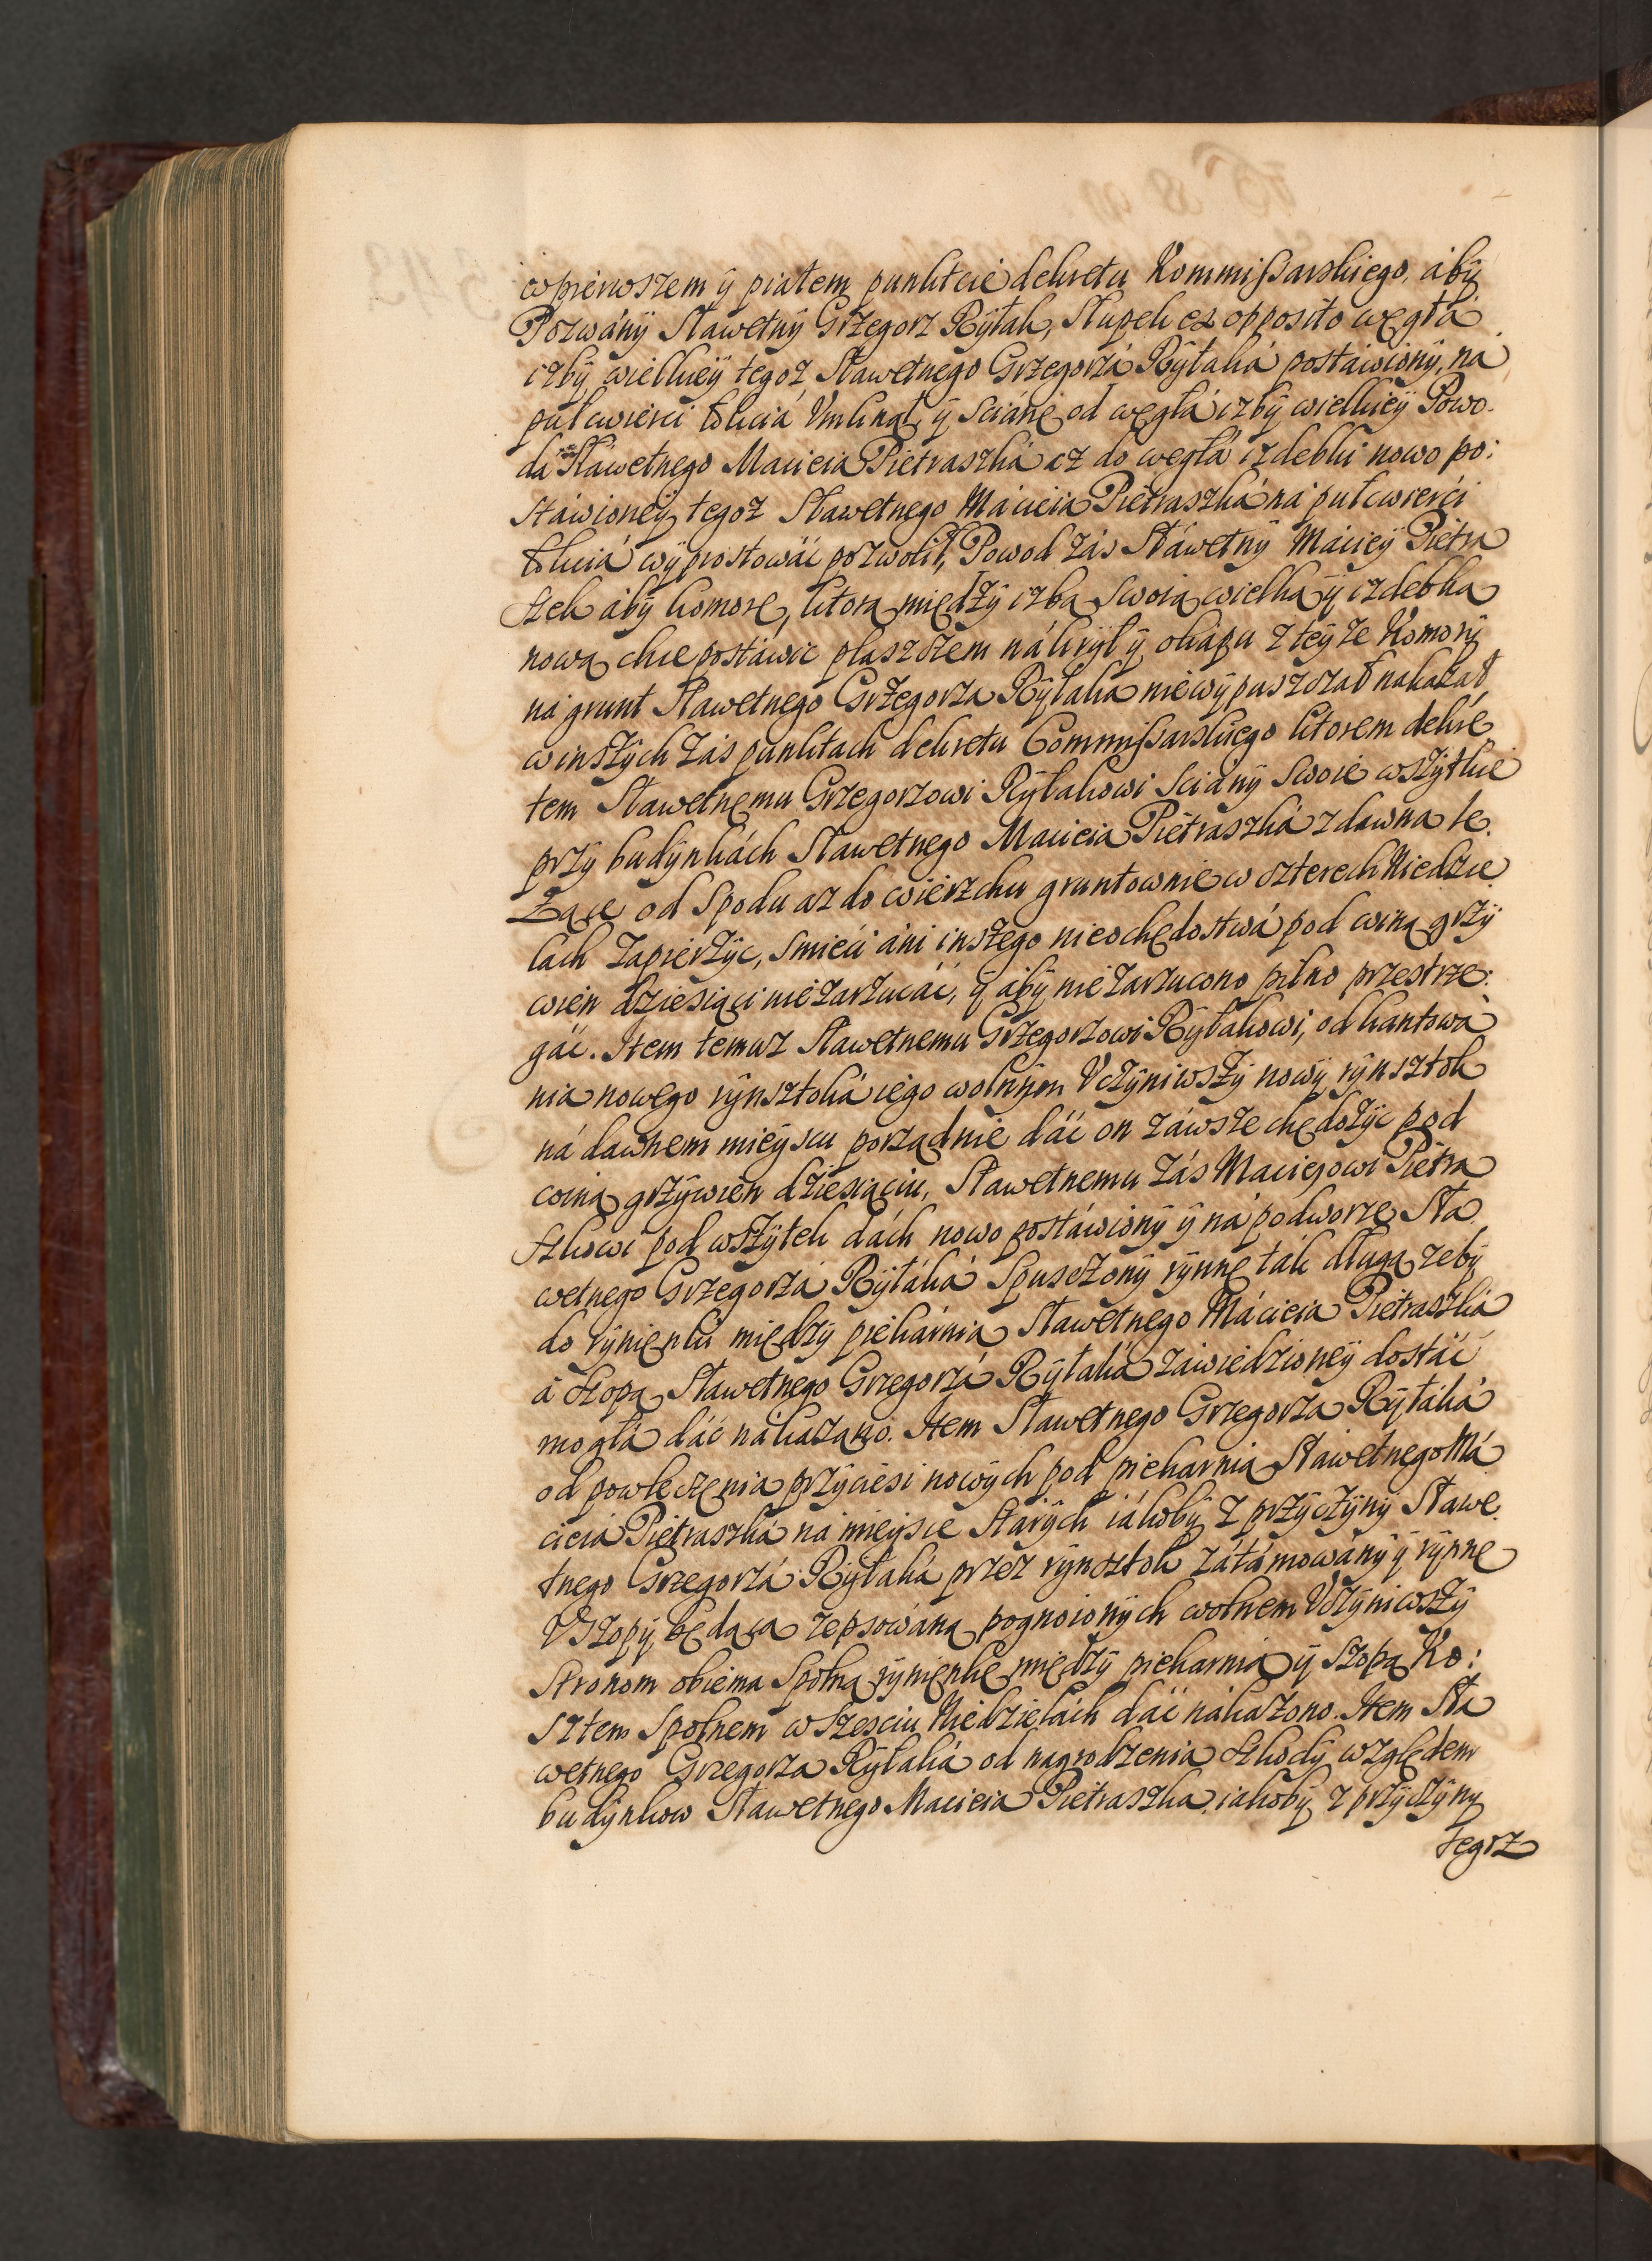 w pierwszem ÿ piatem punkcie dekretu Kommißarskiego, ábÿ
Pozwánÿ Sławetnÿ Grzegorz Rÿłak, Słupek ex opposito węgłá
izbÿ wielkieÿ tegoż Sławetnego Grzegorzá Rÿłaká postáwionÿ, ná
puł cwierci łokciá Vmknął, ÿ scianę od węgłá izbÿ wielkieÿ Powo-
da Sławetnego Macieia Pietraszká az do węgłá izdebki nowo po:
stáwioneÿ tegoż Sławetnego Macieia Pietraszká ná puł cwierci
łokciá wÿprostowáć pozwolił, Powod zás Sławetnÿ Macieÿ Pietra
szek ábÿ komorę, ktorą międzÿ izbą swoią wielką ÿ izdebką
nową chce postáwic płaszczem nákrÿł ÿ okápu z teÿże Komorÿ
ná grunt Sławetnego Grzegorza Rÿłaka nie wÿpuszczał nakazał
w inszÿch zás punktach dekretu Commißarskiego ktorem dekre
tem Sławetnemu Grzegorzowi Rÿłakowi scianÿ swoie wszÿtkie
przÿ budÿnkách Sławetnego Macieia Pietraszká z dawna le
żące od spodu az do wierzchu gruntownie w czterech Niedzie
lach zapierzÿc, smieci áni inszego nieochędostwá pod winą grzÿ
wien dziesiąci nie zarzucáć, ÿ ábÿ nie zarzucono pilno przestrze:
gáć. Item temuz Sławetnemu Grzegorzowi Rÿłakowi, od kantowá
nia nowego rÿnsztoká iego wolnÿm Vczÿniwszÿ nowÿ rÿnsztok
ná dawnem mieÿscu porządnie dáć on záwsze chędożÿc pod
winą grzÿwien dziesiąciu, Sławetnemu zás Maciejowi Pietra
szkowi pod wszÿtek dách nowo postáwionÿ ÿ ná podworze Sła
wetnego Grzegorzá Rÿłáká spusczonÿ rÿnnę ták długą zebÿ
do rÿnienki międzÿ piekárnią Sławetnego Mácieia Pietraszká
á szopą Sławetnego Grzegorzá Rÿłaká záwiedzioneÿ dostáć
mogłá dáć nákazano. Item Sławetnego Grzegorza Rÿłáká
od powleczenia przÿciesi nowÿch pod piekarnią Sławetnego Má
cieiá Pietraszká ná mieÿsce starÿch iákobÿ z przÿczÿnÿ Sławe
tnego Grzegorzá Rÿłaká przez rÿnsztok zátámowánÿ ÿ rÿnnę
V szopÿ będącą zepsowáną pognoionÿch wolnem Vczÿniwszÿ
stronom obiema społną rÿnienkę międzÿ piekarnią ÿ szopą Ko:
sztem społnem w szesciu Niedzielách dáć nákazono. Item Sła
wetnego Grzegorza Rÿłaká od nagrodzenia szkodÿ względem
budÿnkow Sławetnego Macieia Pietraszka iakobÿ z przÿczÿnÿ
tegoz